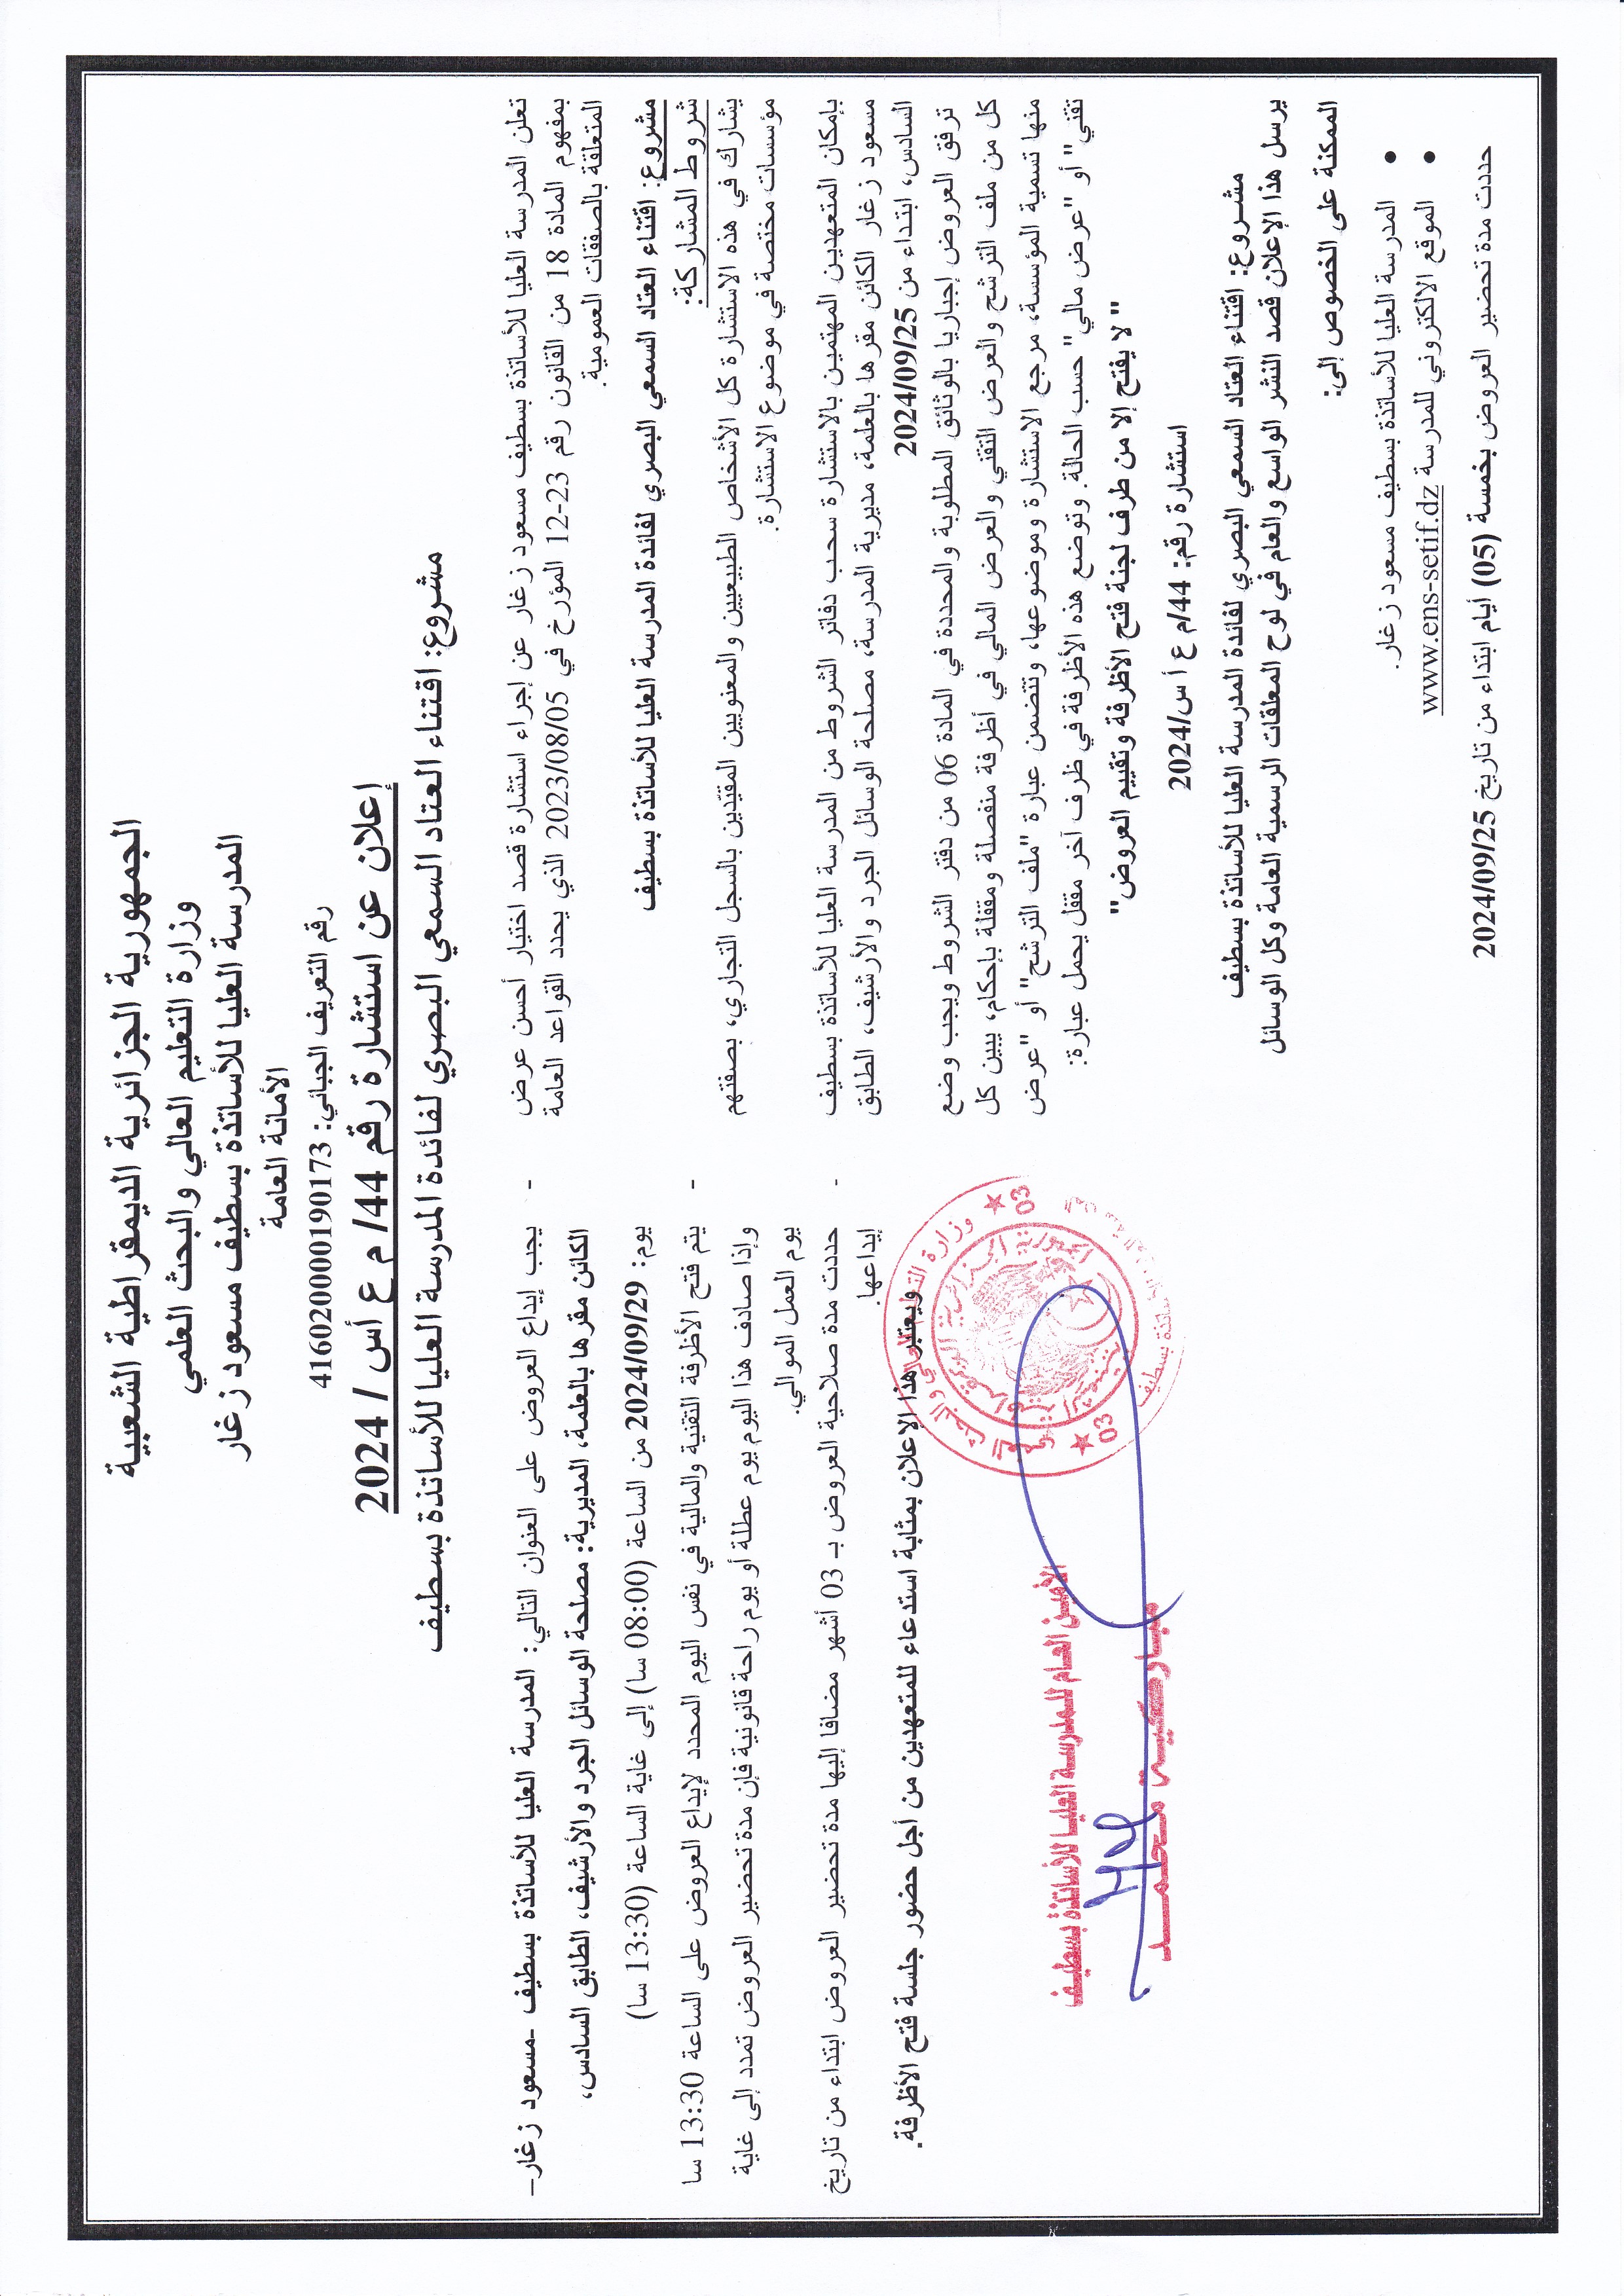 الجمهورية الجزائرية الديمقراطية الشعبية
وزارة التعليم العالي والبحث العلمي
المدرسة العليا للأساتذة بسطيف مسعود زغار
الأمانة العامة
رقم التعريف الجبائي: 416020000190173
إعلان عن استشارة رقم 44/ م ع أس / 2024
مشروع: اقتناء العتاد السمعي البصري لفائدة المدرسة العليا للأساتذة بسطيف
تعلن المدرسة العليا للأساتذة بسطيف مسعود زغار عن إجراء استشارة قصد اختيار أحسن عرض
بمفهوم المادة 18 من القانون رقم 23-12 المؤرخ في 2023/08/05 الذي يحدد القواعد العامة
المتعلقة بالصفقات العمومية.
مشروع: اقتناء العتاد السمعي البصري لفائدة المدرسة العليا للأساتذة بسطيف
شروط المشاركة:
يشارك في هذه الاستشارة كل الأشخاص الطبيعيين والمعنويين المقيّدين بالسجل التجاري، بصفتهم
مؤسسات مختصة في موضوع الاستشارة.
بإمكان المتعهدين المهتمين بالاستشارة سحب دفاتر الشروط من المدرسة العليا للأساتذة بسطيف
مسعود زغار الكائن مقرها بالعلمة، مديرية المدرسة، مصلحة الوسائل الجرد والأرشيف، الطابق
السادس، ابتداء من 2024/09/25
ترفق العروض إجباريا بالوثائق المطلوبة والمحددة في المادة 06 من دفتر الشروط ويجب وضع
كل من ملف الترشح والعرض التقني والعرض المالي في أظرفة منفصلة ومقفلة بإحكام، يبين كل
منها تسمية المؤسسة، مرجع الاستشارة وموضوعها، وتتضمن عبارة "ملف الترشح" أو "عرض
تقني" أو "عرض مالي" حسب الحالة. وتوضع هذه الأظرفة في ظرف آخر مقفل يحمل عبارة:
" لا يفتح إلا من طرف لجنة فتح الأظرفة وتقييم العروض"
استشارة رقم: 44/م ع أ س/2024
مشروع: اقتناء العتاد السمعي البصري لفائدة المدرسة العليا للأساتذة بسطيف
يرسل هذا الإعلان قصد النشر الواسع والعام في لوح المعلقات الرسمية العامة وكل الوسائل
الممكنة على الخصوص إلى:
• المدرسة العليا للأساتذة بسطيف مسعود زغار.
• الموقع الالكتروني للمدرسة www.ens-setif.dz
حددت مدة تحضير العروض بخمسة (05) أيام ابتداء من تاريخ 2024/09/25
- يجب إيداع العروض على العنوان التالي: المدرسة العليا للأساتذة بسطيف -مسعود زغار–
الكائن مقرها بالعلمة، المديرية: مصلحة الوسائل الجرد والأرشيف، الطابق السادس،
يوم: 2024/09/29 من الساعة (08:00 سا) إلى غاية الساعة (13:30 سا)
- يتم فتح الأظرفة التقنية والمالية في نفس اليوم المحدد لإيداع العروض على الساعة 13:30 سا
وإذا صادف هذا اليوم يوم عطلة أو يوم راحة قانونية فإن مدة تحضير العروض تمدد إلى غاية
يوم العمل الموالي.
- حددت مدة صلاحية العروض بـ 03 أشهر مضافا إليها مدة تحضير العروض ابتداء من تاريخ
إيداعها.
ويعتبر هذا الاعلان بمثابة استدعاء للمتعهدين من أجل حضور جلسة فتح الأظرفة.
وزارة التعليم العالي والبحث العلمي
الجمهورية الجزائرية الديمقراطية الشعبية
03
03
الأمين العام للمدرسة العليا للأساتذة بسطيف
مباركية محمد